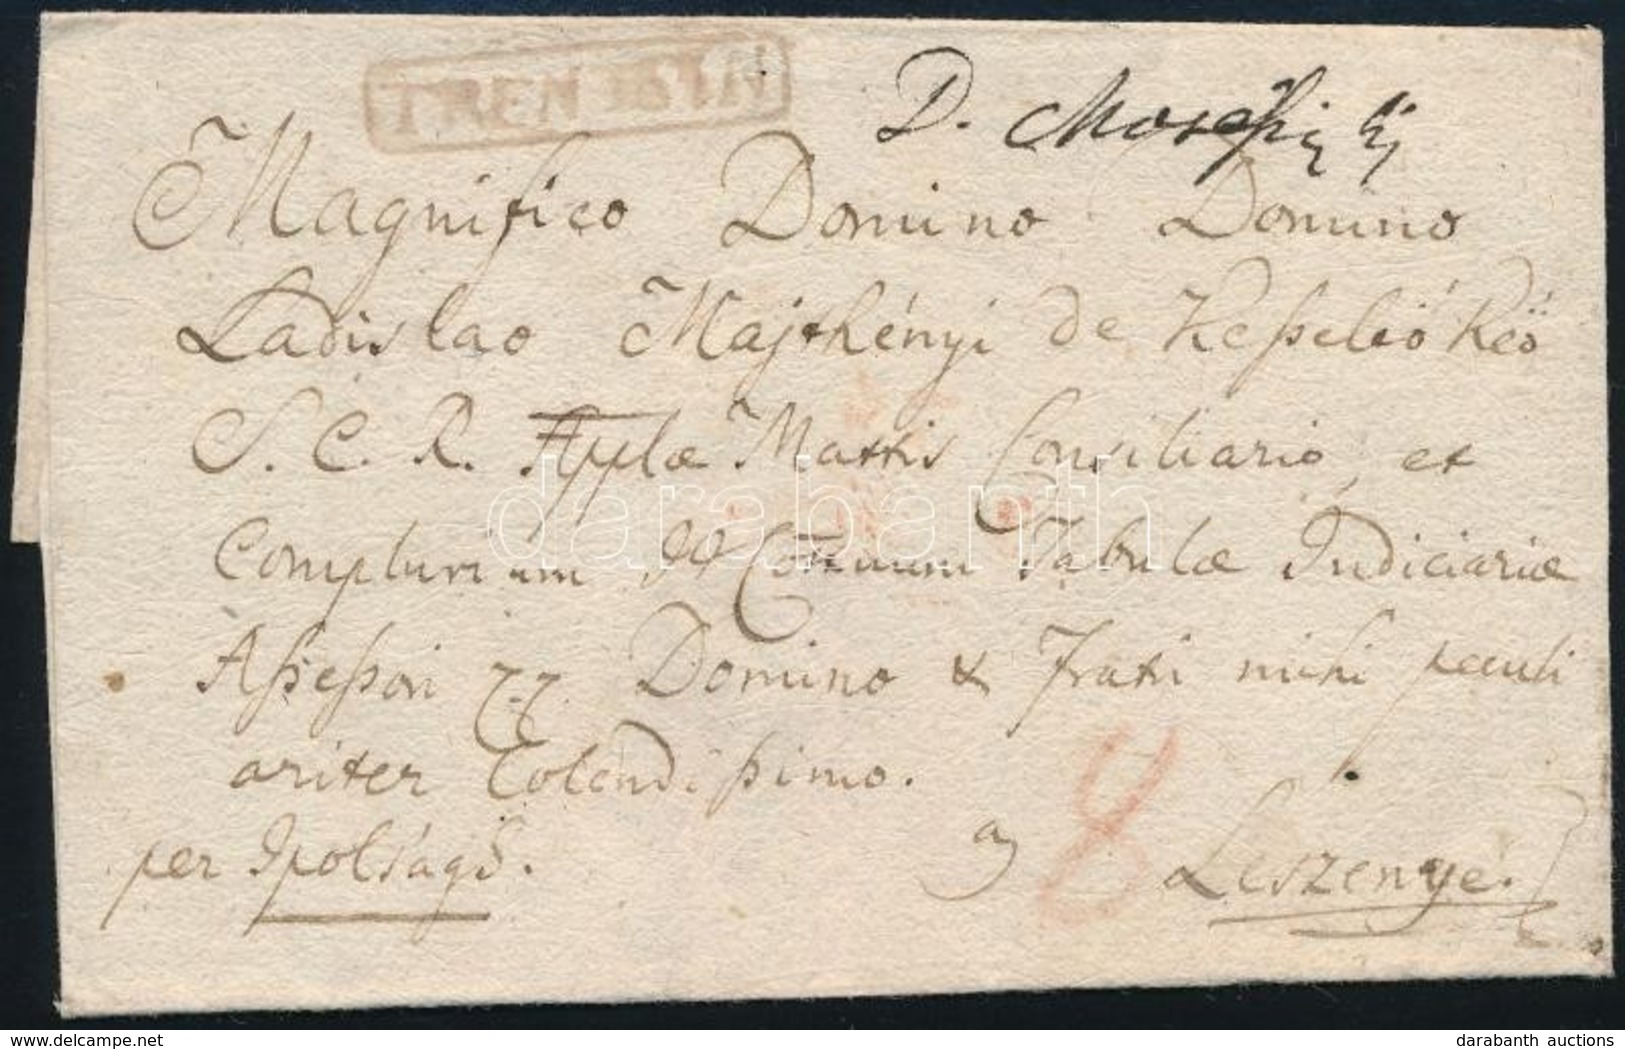 TRENTSIN
D.
Magnifico Domino Domino
Ladislao Majthényi de Keßeleő Keő
S. C. R. Applæ Mattis Consiliario, et
Complurium I Comunm Tabulæ Judiciariæ
Aßeßori Domino & Fratri mihi peculi
ariter Colendißimo.
per Ipolságh.
a 8 Leszenyé.
darabanth
darabanth auctions